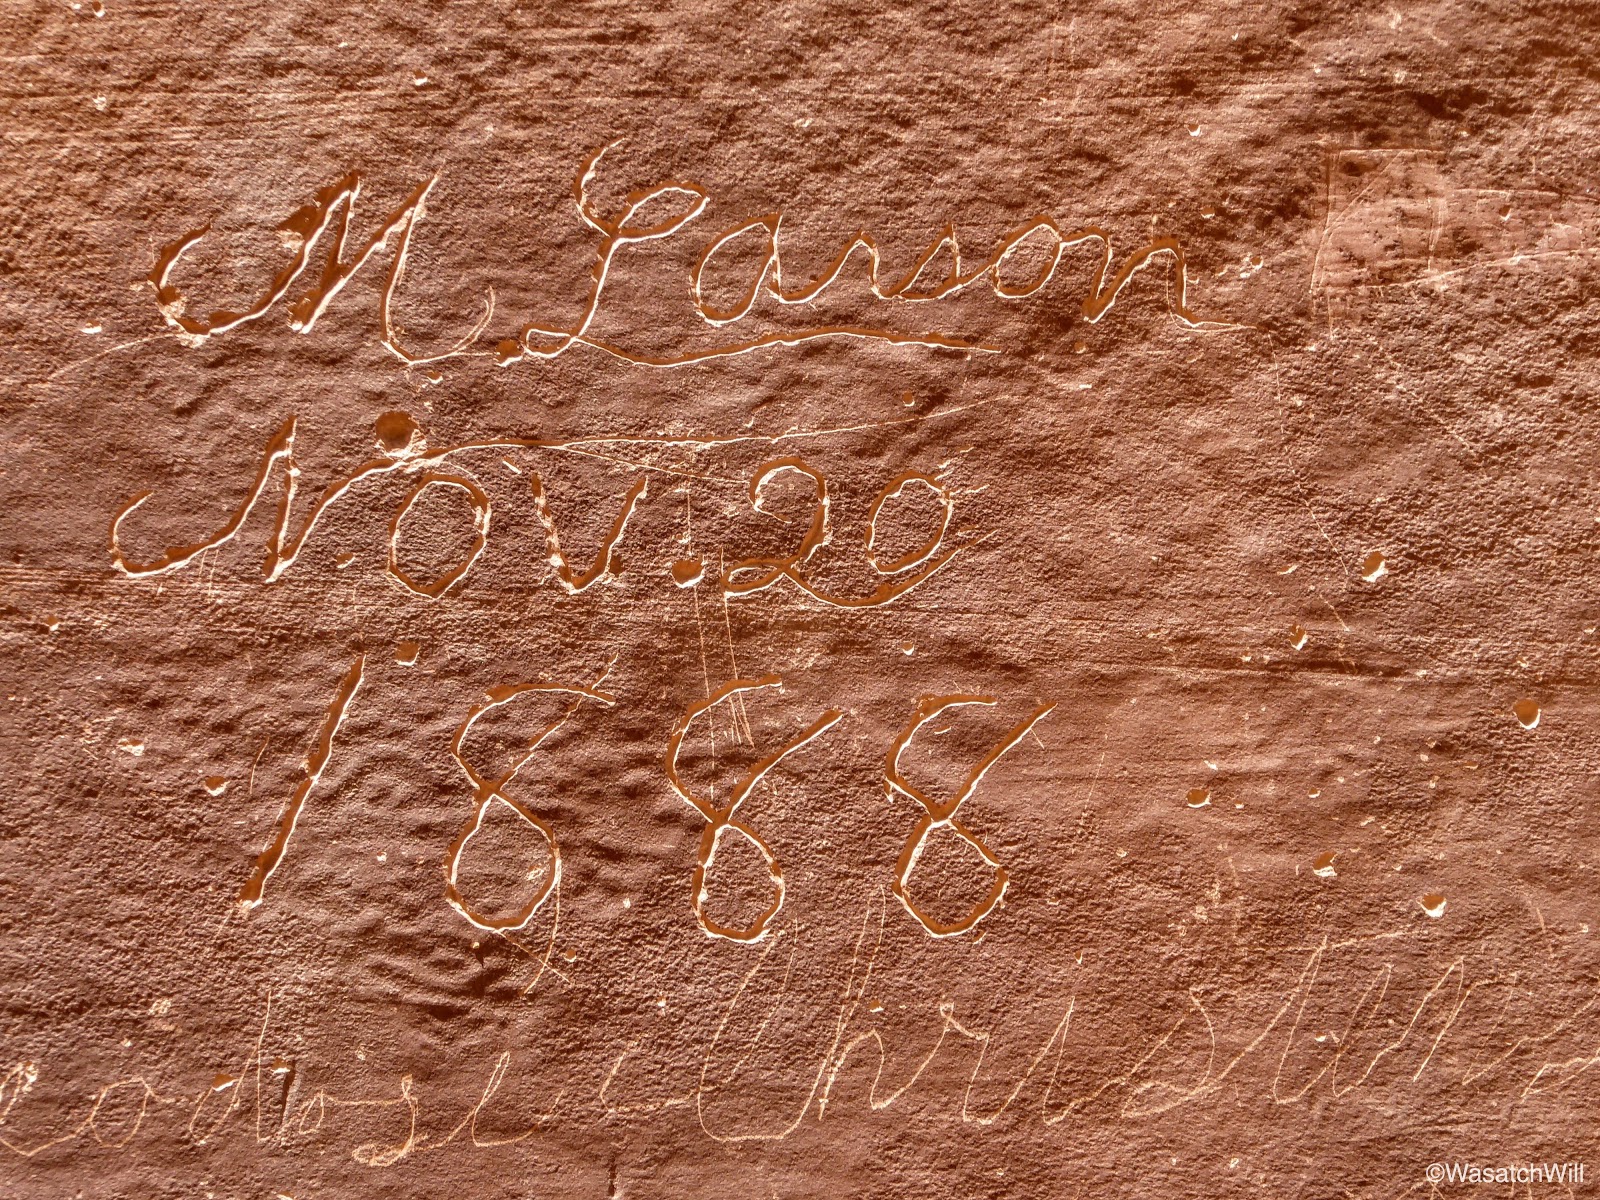 M. Larson
Nov. 20
1888
Christens
©WasatchWill